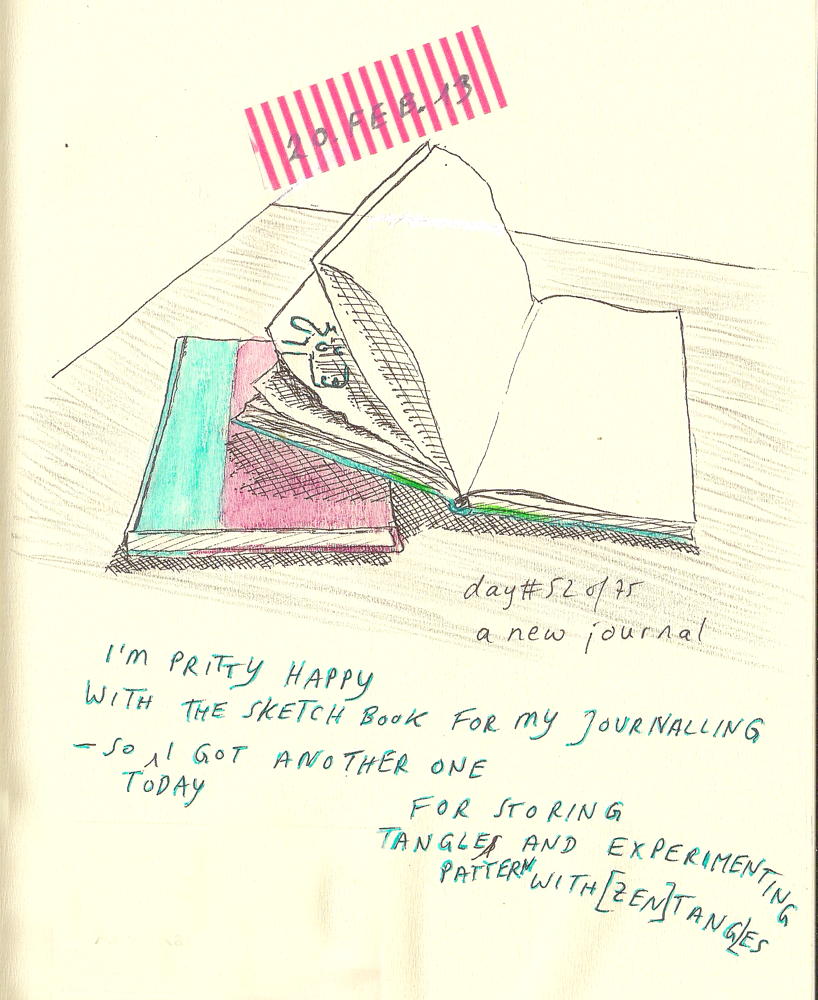 20. FEB. 13
day#52 of 75
a new journal
I'M PRITTY HAPPY
WITH THE SKETCH BOOK FOR MY JOURNALLING
– SO I GOT ANOTHER ONE
TODAY
FOR STORING
TANGLES AND EXPERIMENTING
PATTERN WITH [ZEN]TANGLES